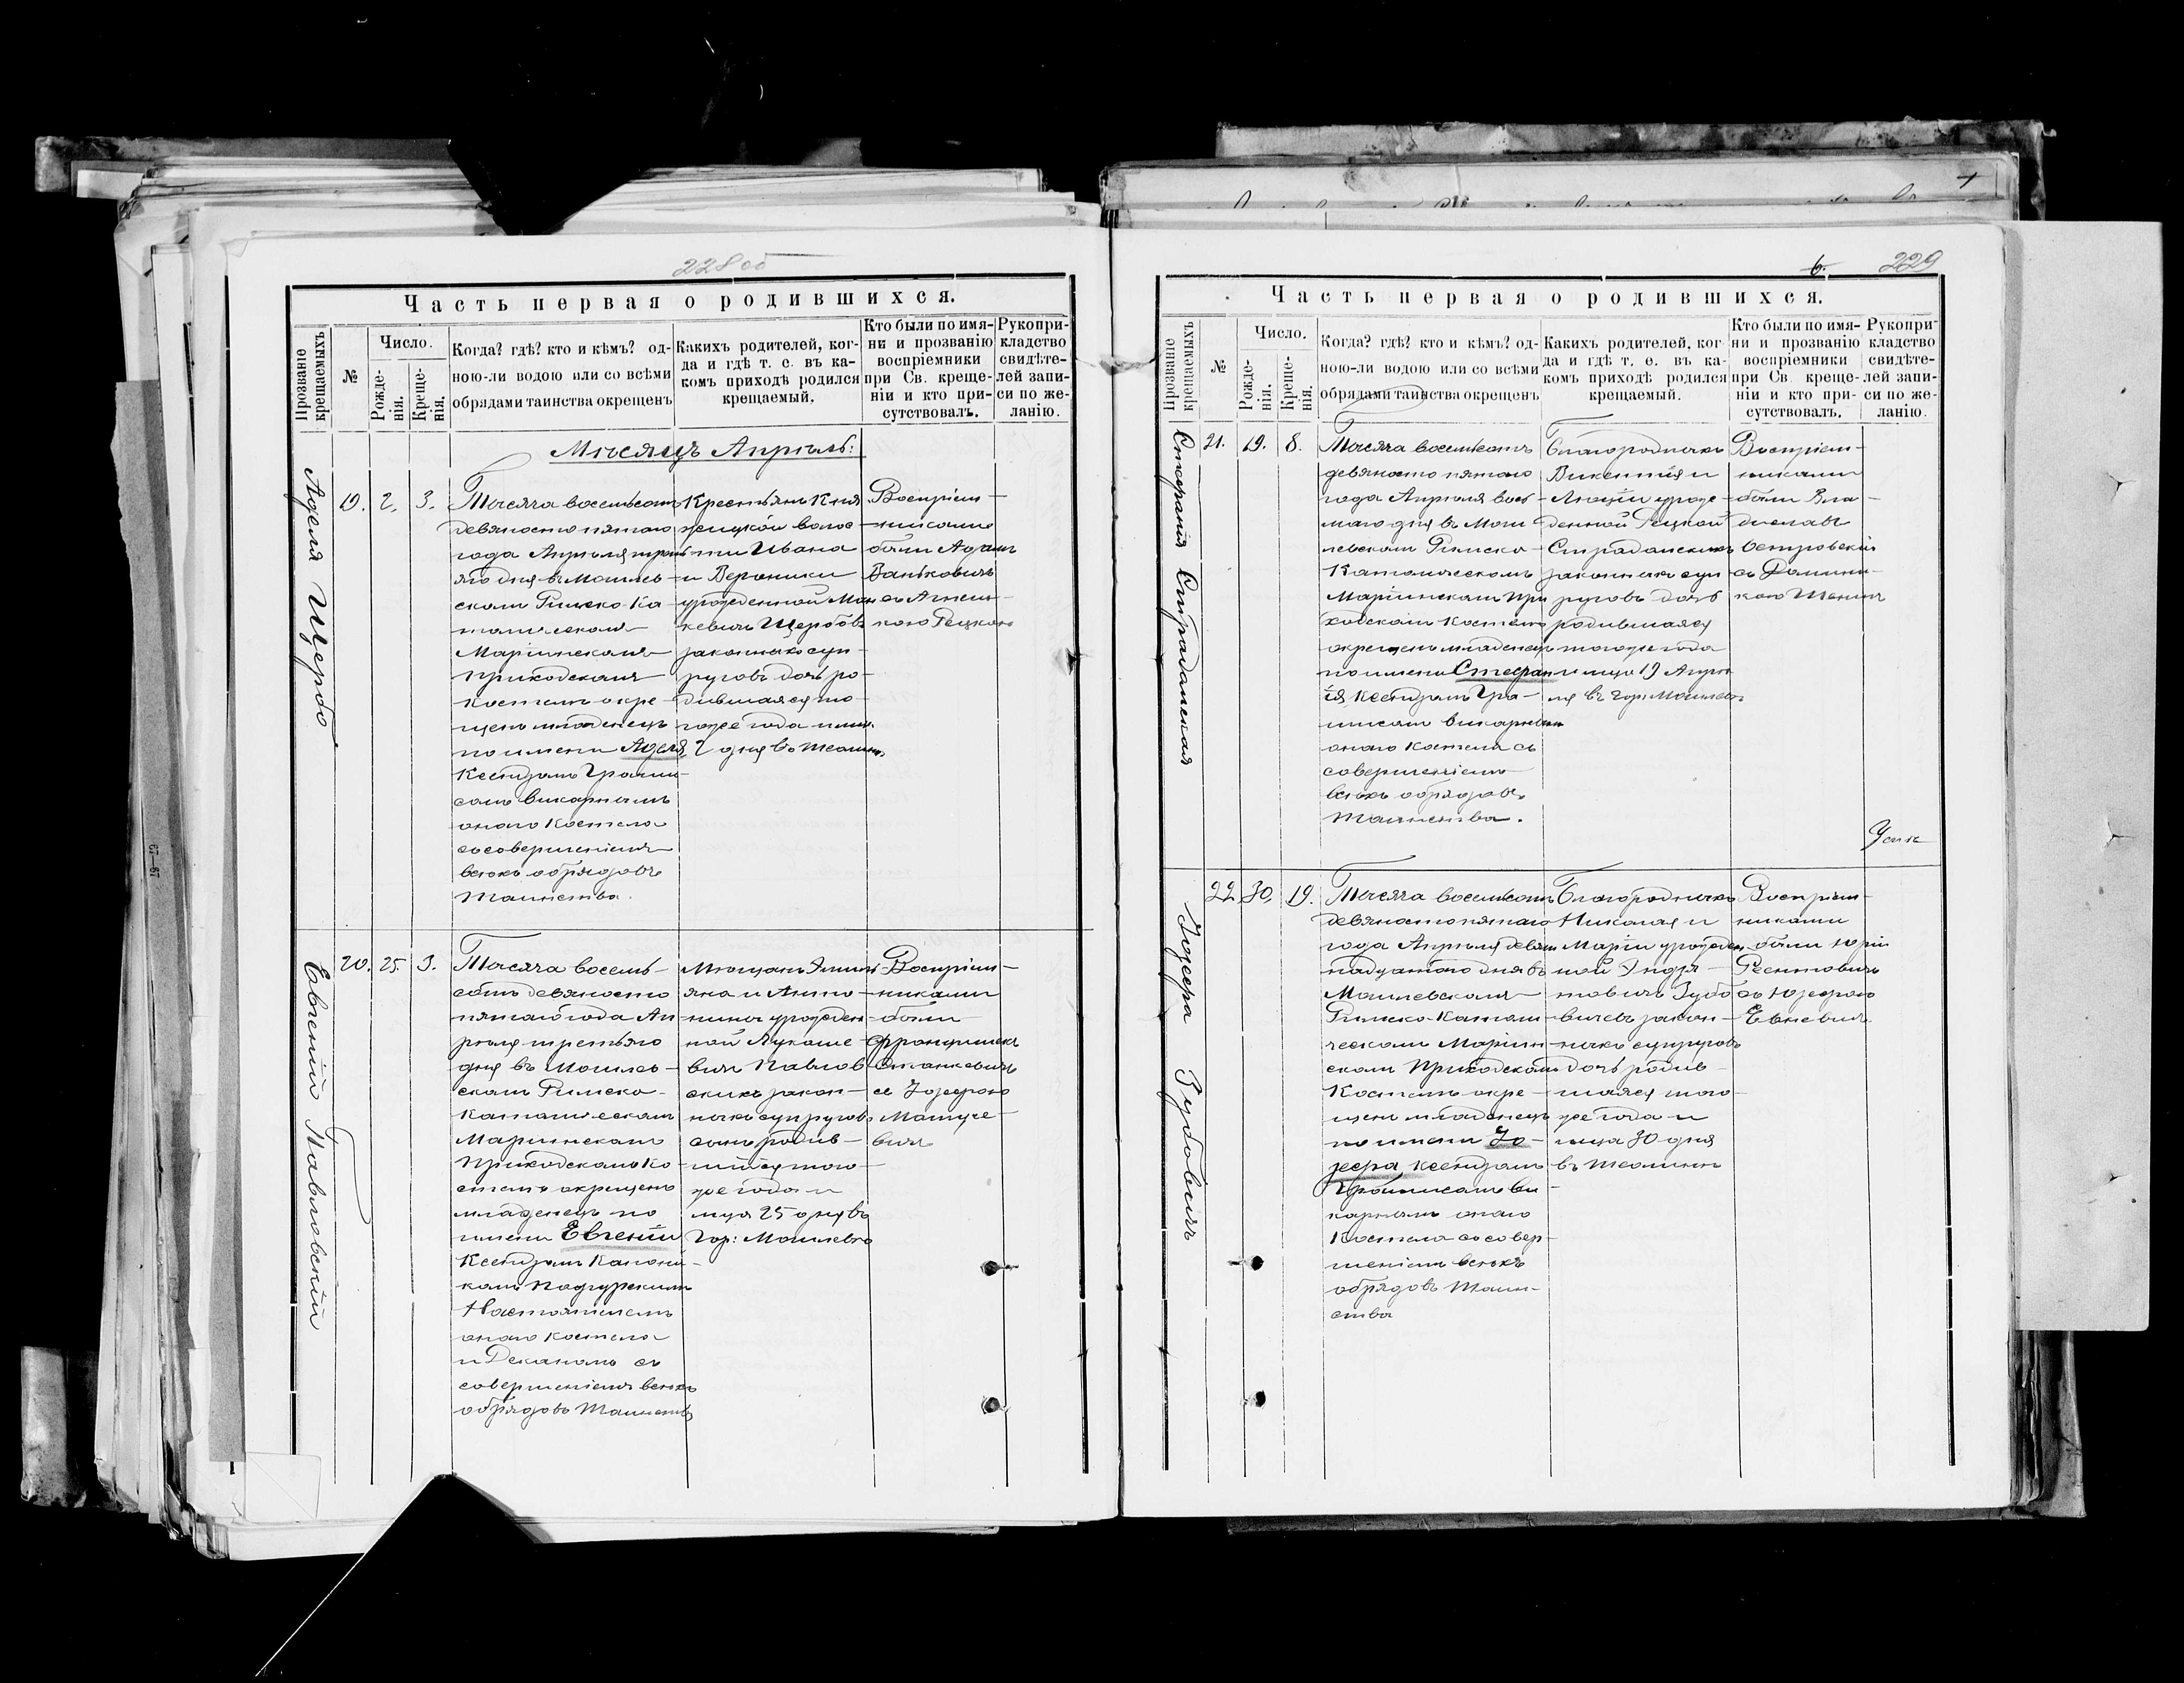 228 об
Часть первая о родившихся.
Прозваніе крещаемыхъ
№
Число.
Рожде-
нія.
Креще-
нія.
Когда? гдѣ? кто и кѣмъ? од-
ною-ли водою или со всѣми
обрядами таинства окрещенъ
Какихъ родителей, ког-
да и гдѣ т. е. въ ка-
комъ приходѣ родился
крещаемый.
Кто были по имя-
ни и прозванію
воспріемники
при Св. креще-
ніи и кто при-
сутствовалъ.
Рукопри-
кладство
свидѣте-
лей запи-
си по же-
ланію.
Мѣсяцъ Апрѣль:
Аделя Щербо
19. 2. 3.
Тысяча восемьсотъ
девяносто пятаго
года Апрѣля треть
яго дня въ Могилев-
скомъ Римско-Ка-
толическомъ
Маріинскомъ
Приходскомъ
Костелѣ окре-
щенъ младенецъ
по имени Аделя,
Ксендзомъ Грами-
сомъ викарнымъ
онаго Костела
съ совершеніемъ
всѣхъ обрядовъ
Таинства.
Крестьянъ Кня
жицкой волос-
ти Ивана
и Вероники
урожденной Мон
кевичъ Щербовъ
законныхъ суп-
руговъ дочь ро-
дившаяся то-
гоже года и мца
2 дня въ
Воспріем-
никами
были Адамъ
Ваньковичъ
съ Агнеш-
кою Рецкою
Евгеній Павловскій
20. 25. 3.
Тысяча восемь-
сотъ девяносто
пятаго года Ап-
рѣля третьяго
дня въ Могилев-
скомъ Римско-
Католическомъ
Маріинскомъ
Приходскомъ Ко-
стелѣ окрещенъ
младенецъ по
имени Евгеній
Ксендзомъ Канони-
комъ Подгурскимъ
Настоятелемъ
онаго Костела
и Деканомъ съ
совершеніемъ всѣхъ
обрядовъ Таинства
Мѣщанъ Эмили-
яна и Анто-
нины урожден-
ной Лукаше-
вичъ Павлов-
скихъ закон-
ныхъ супруговъ
сынъ родив-
шійся того
же года и
мца 25 дня въ
Гор: Могилевѣ
Воспріем-
никами
были
Францишекъ
Станкевичъ
съ Іозефою
Матуле-
вичъ
6. 229
Часть первая о родившихся.
Прозваніе крещаемыхъ
№
Число.
Рожде-
нія.
Креще-
нія.
Когда? гдѣ? кто и кѣмъ? од-
ною-ли водою или со всѣми
обрядами таинства окрещенъ
Какихъ родителей, ког-
да и гдѣ т. е. въ ка-
комъ приходѣ родился
крещаемый.
Кто были по имя-
ни и прозванію
воспріемники
при Св. креще-
ніи и кто при-
сутствовалъ.
Рукопри-
кладство
свидѣте-
лей запи-
си по же-
ланію.
Стефанія Страдомская
21. 19. 8.
Тысяча восемьсотъ
девяносто пятаго
года Апрѣля вось
маго дня въ Моги
левскомъ Римско-
Католическомъ
Маріинскомъ При
ходскомъ Костелѣ
окрещенъ младенецъ
по имени Стефан
ія Ксендзомъ Гра-
мисомъ викарнымъ
онаго Костела съ
совершеніемъ
всѣхъ обрядовъ
Таинства.
Благородныхъ
Викентія и
Люціи урож-
денной Рецкой
Страдомскихъ
законныхъ суп
руговъ дочь
родившаяся
тогоже года
и мца 19 Апрѣ
ля въ гор: Могилевѣ
Воспріем-
никами
были Вла-
диславъ
Островскій
съ Домини-
кою
Іозефа Зубовичъ
22. 30. 19.
Тысяча восемьсотъ
девяносто пятаго
года Апрѣля девят
надцатаго дня въ
Могилевскомъ
Римско-Католи-
ческомъ Маріин-
скомъ Приходскомъ
Костелѣ окре-
щенъ младенецъ
по имени Іо-
зефа, Ксендзомъ
Грамисомъ ви-
карнымъ онаго
Костела съ совер-
шеніемъ всѣхъ
обрядовъ Таин-
ства
Благородныхъ
Николая и
Маріи урожден
ной
Зубо
вичевъ закон-
ныхъ супруговъ
дочь родив-
шаяся того
же года и
мца 30 дня
въ
Воспріем-
никами
были Юрій
съ Юзефою